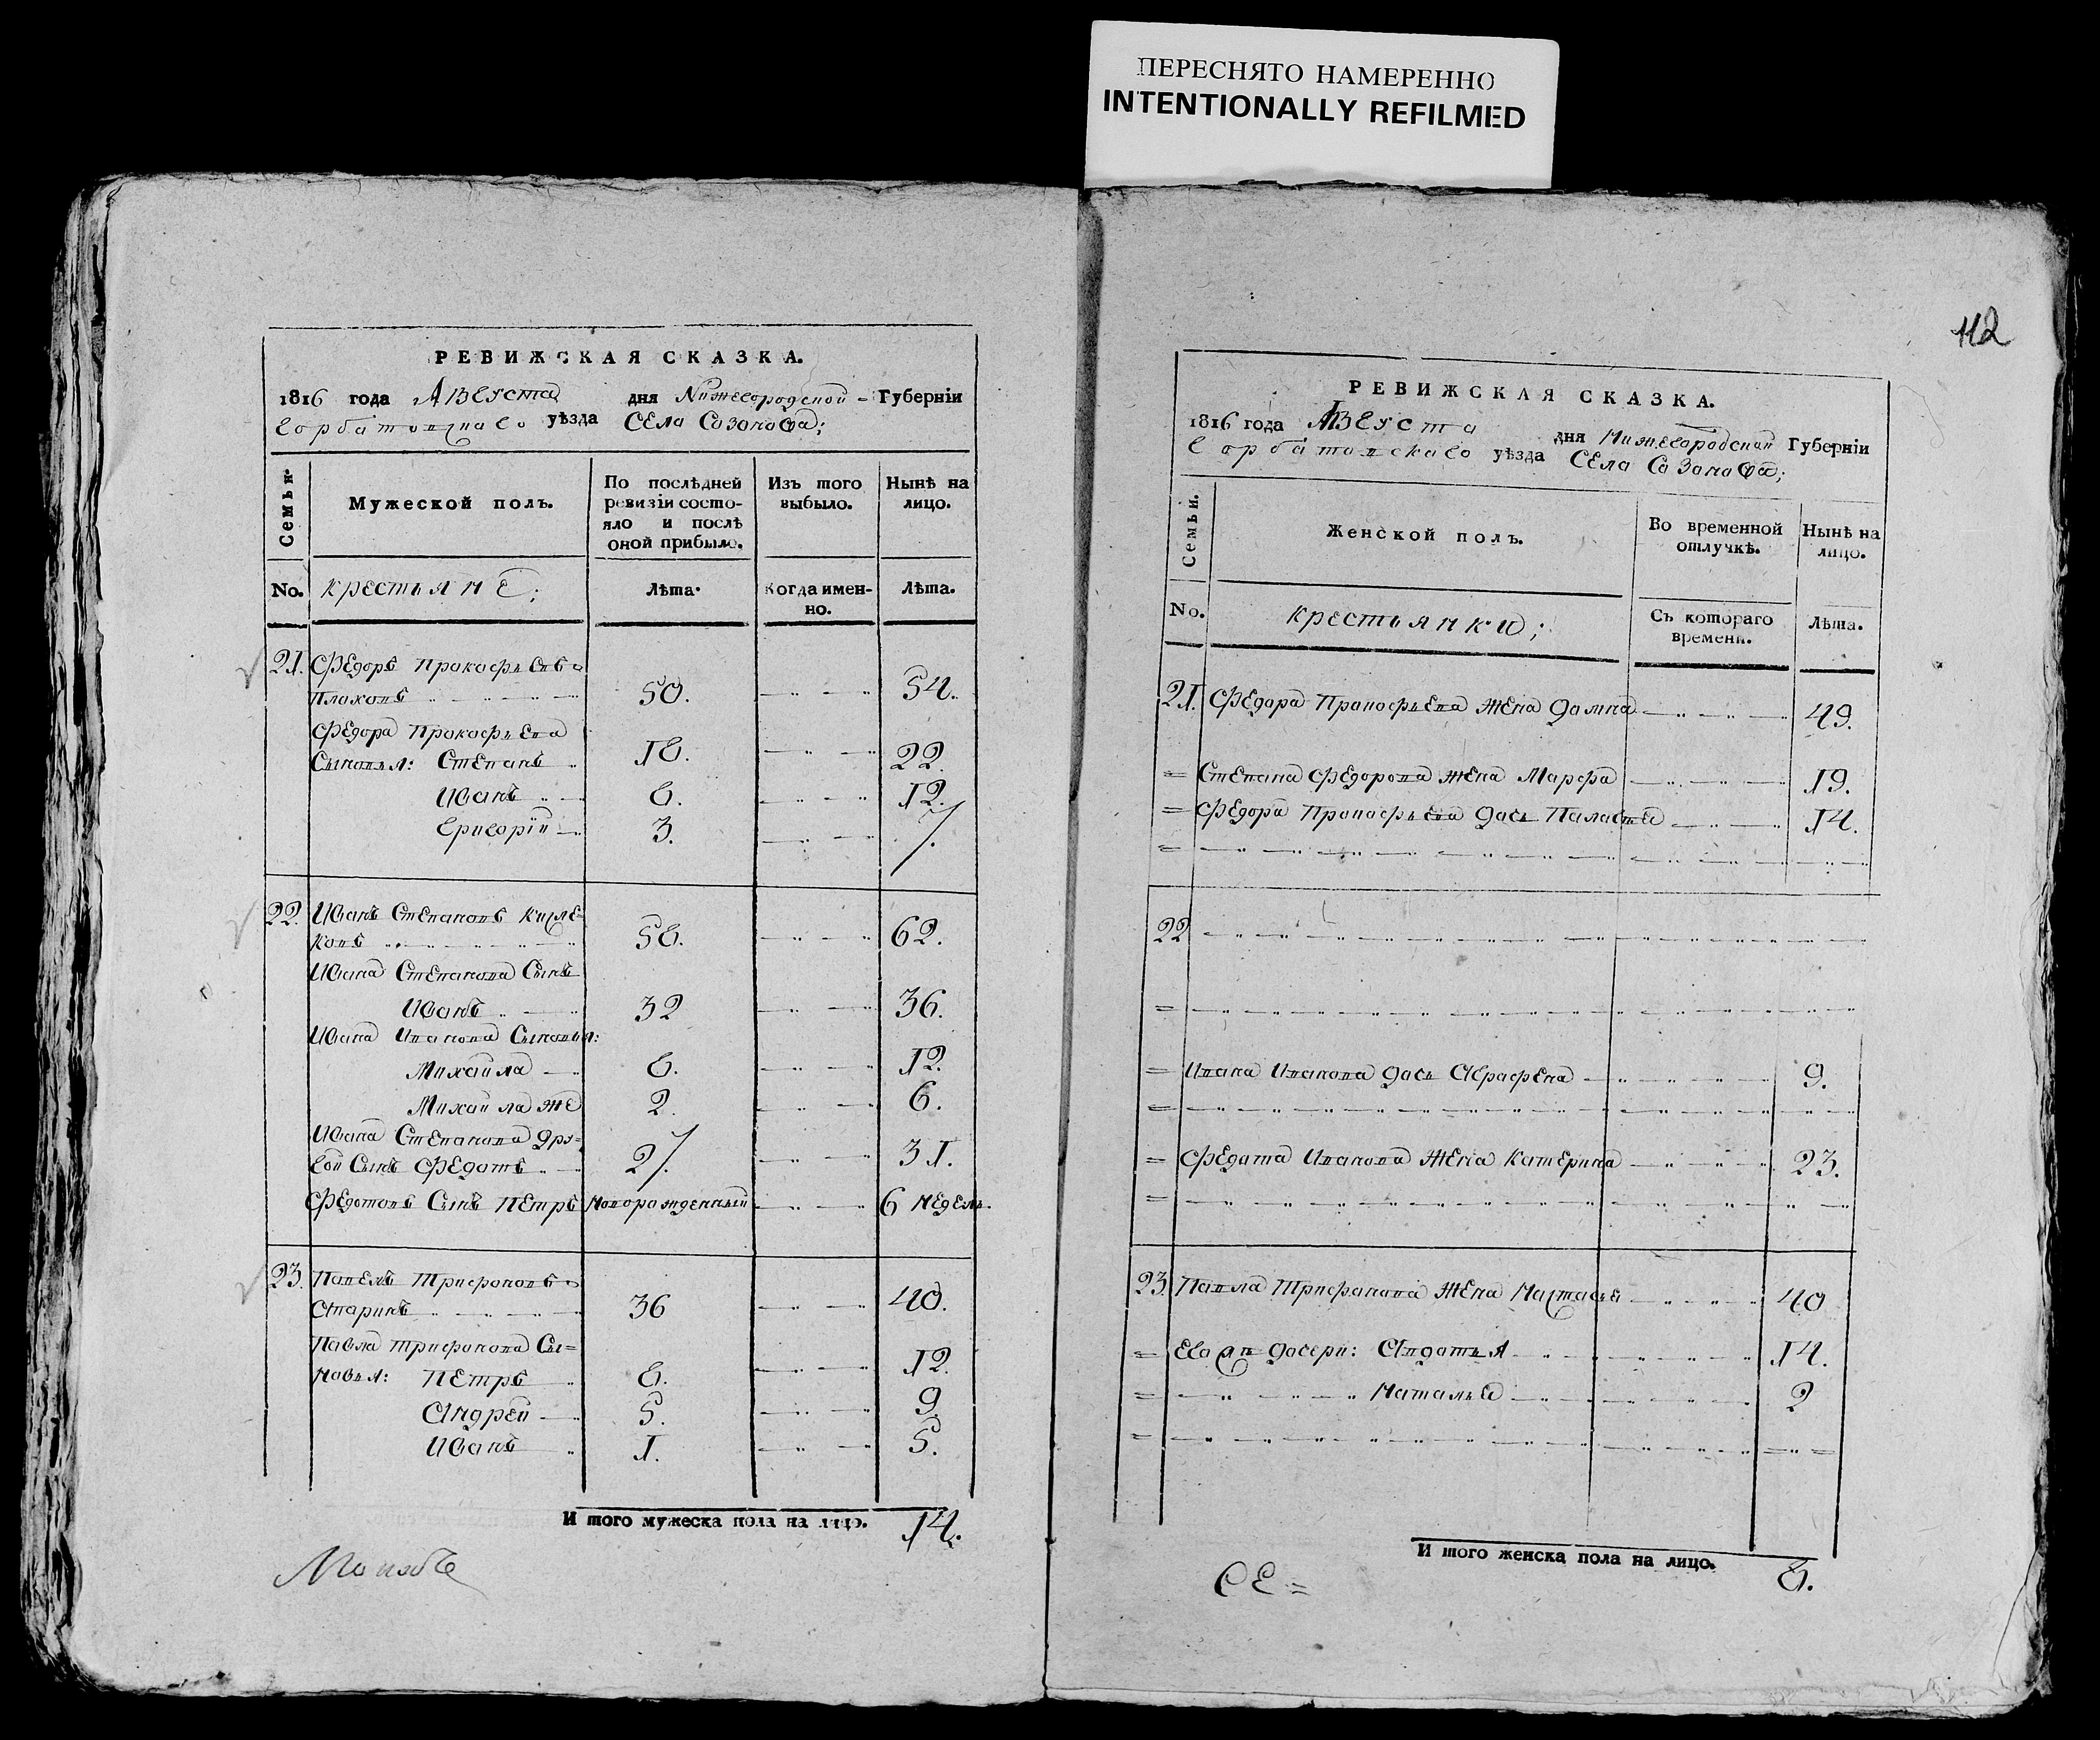 ПЕРЕСНЯТО НАМЕРЕННО
INTENTIONALLY REFILMED
112
РЕВИЖСКАЯ СКАЗКА.
1816 года Августа дня Нижегородской Губерніи
Горбатовскаго уѣзда Села Созонова;
Семьи.
Мужеской полъ.
По послѣдней ревизіи состояло и послѣ оной прибыло.
Изъ того выбыло.
Нынѣ на лицо.
No. крестьяне;
Лѣта.
Когда именно.
Лѣта.
21. Федоръ Прокофьевъ
Плаховъ 50. 54.
Федора Прокофьева
Сыновья: Степанъ 18. 22.
Иванъ 8. 12.
Григорій 3. 7.
22. Иванъ Степановъ
ковъ 58. 62.
Ивана Степанова Сынъ
Иванъ 32 36.
Ивана Иванова Сыновья:
Михайла 8. 12.
Михайла же 2. 6.
Ивана Степанова дру=
гой Сынъ Федотъ 27. 31.
Федотовъ Сынъ Петръ Новорожденный 6 недель.
23. Павелъ Трифоновъ
Старинъ 36 40.
Павла Трифонова Сы=
новья: Петръ 8. 12
Андрей 5. 9.
Иванъ 1. 5.
И того мужеска пола на лицо. 14.
РЕВИЖСКАЯ СКАЗКА.
1816 года Августа дня Нижегородской Губерніи
Горбатовскаго уѣзда Села Созонова;
Семьи.
Женской полъ.
Во временной отлучкѣ.
Нынѣ на лицо.
No. крестьянки;
Съ котораго времени.
Лѣта.
21. Федора Прокофьева жена Домна 49.
= Степана Федорова жена Марфа 19.
= Федора Прокофьева дочь Палагея 14.
22
= Ивана Иванова дочь Аграфена 9.
= Федота Иванова жена Катерина 23.
23. Павла Трифонова жена Настасья 40
= Его дочери: Авдотья 14.
= Наталья 2
И того женска пола на лицо. 8.